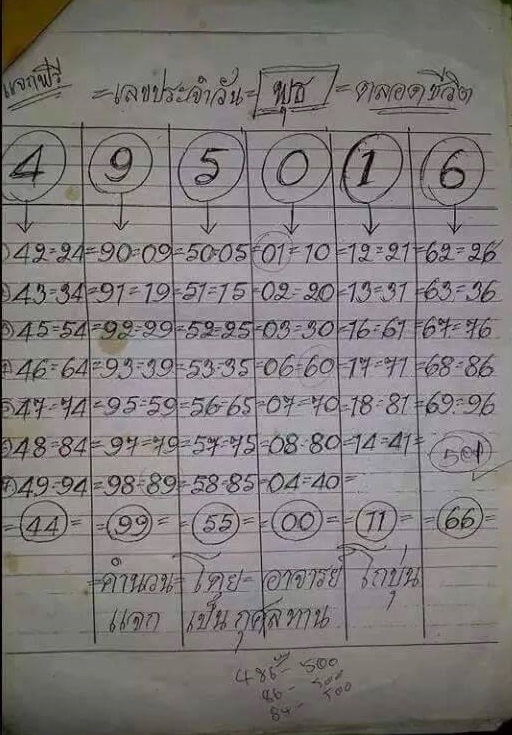 แจกฟรี
=เลขประจำวัน= พุธ =ตลอดชีวิต
4 9 5 0 1 6
42=24=90=09=50=05=01=10=12=21=62=26
43=34=91=19=51=15=02=20=13=31=63=36
45=54=92=29=52=25=03=30=16=61=67=76
46=64=93=39=53=35=06=60=17=71=68=86
5 47=74=95=59=56=65=07=70=18=81=69=96
48=84=97=79=57=75=08=80=14=41=
501
49=94=98=89=58=85=04=40=
=44= =99= =55= =00= =11= =66=
=คำนวน= โดย= อาจารย์ โกบุ่น
แจก เป็นกุศลทาน
486 - 500
86 - 500
84 - 500